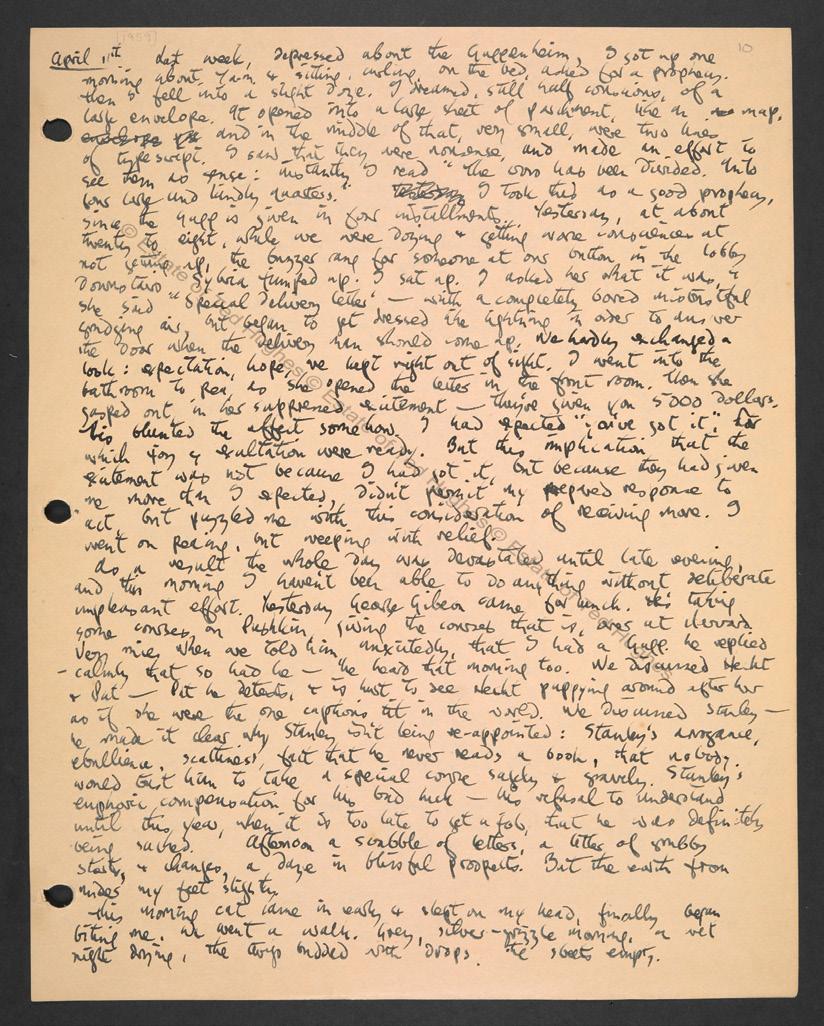 [1959]
10
April 11th Last week, depressed about the Guggenheim, I got up one
morning about 7 a.m. & sitting, curling, on the bed, asked for a prophecy.
then I fell into a slight doze. I dreamed, still half conscious, of a
large envelope. It opened into a large sheet of parchment, like an map,
and in the middle of that, very small, were two lines
of typescript. I saw that they were nonsense, and made an effort to
see them as sense: instantly I read "the word has been divided. Into
four large and kindly quarters." I took this as a good prophecy,
since the Gugg is given in four installments. Yesterday, at about
twenty to eight, while we were dozing & getting worse consciences at
not getting up, the buzzer rang for someone at our button in the lobby
downstairs. Sylvia jumped up. I sat up. I asked her what it was, &
she said "Special Delivery letter" — with a completely bored mistrustful
grudging air, but began to get dressed like lightning in order to answer
the door when the delivery man should come up. We hardly exchanged a
look: expectation, hope, we kept right out of sight. I went into the
bathroom to pee as she opened the letter in the front room. Then she
gasped out, in her suppressed excitement — they've given you 5000 dollars.
This blunted the effect somehow. I had expected "you've got it", for
which joy & exultation were ready. But this implication that the
excitement was not because I had got it, but because they had given
me more than I expected, didn't permit my prepared response to
act, but puzzled me with this consideration of receiving more. I
went on peeing, but weeping with relief.
As a result the whole day was devastated until late evening,
and this morning I haven't been able to do anything without deliberate
unpleasant effort. Yesterday George Gibson came for lunch. He's taking
some courses on Pushkin, giving the courses that is, over at Harvard.
Very nice, when we told him, unexcitedly, that I had a Gugg. he replied
– calmly that so had he — he heard that morning too. We discussed Hecht
& Pat — Pat he detests, & is hurt to see Hecht puppying around after her
as if she were the one captious tit in the world. We discussed Stanley —
he made it clear why Stanley isn't being re-appointed: Stanley's arrogance,
ebullience, scattiness, fact that he never reads a book, that nobody
would trust him to take a special course safely & gravely. Stanley's
euphoric compensation for his bad luck — his refusal to understand
until this year, when it is too late to get a job, that he was definitely
being sacked. Afternoon a scribble of letters, a litter of grubby
starts, & changes, a daze in blissful prospects. But the earth from
under my feet slightly.
This morning cat came in early & slept on my head, finally began
biting me. We went a walk. Grey, silver-grizzle morning, a wet
night drying, the twigs budded with drops. The streets empty.
© Estate of Ted Hughes © Estate of Ted Hughes © Estate of Ted Hughes